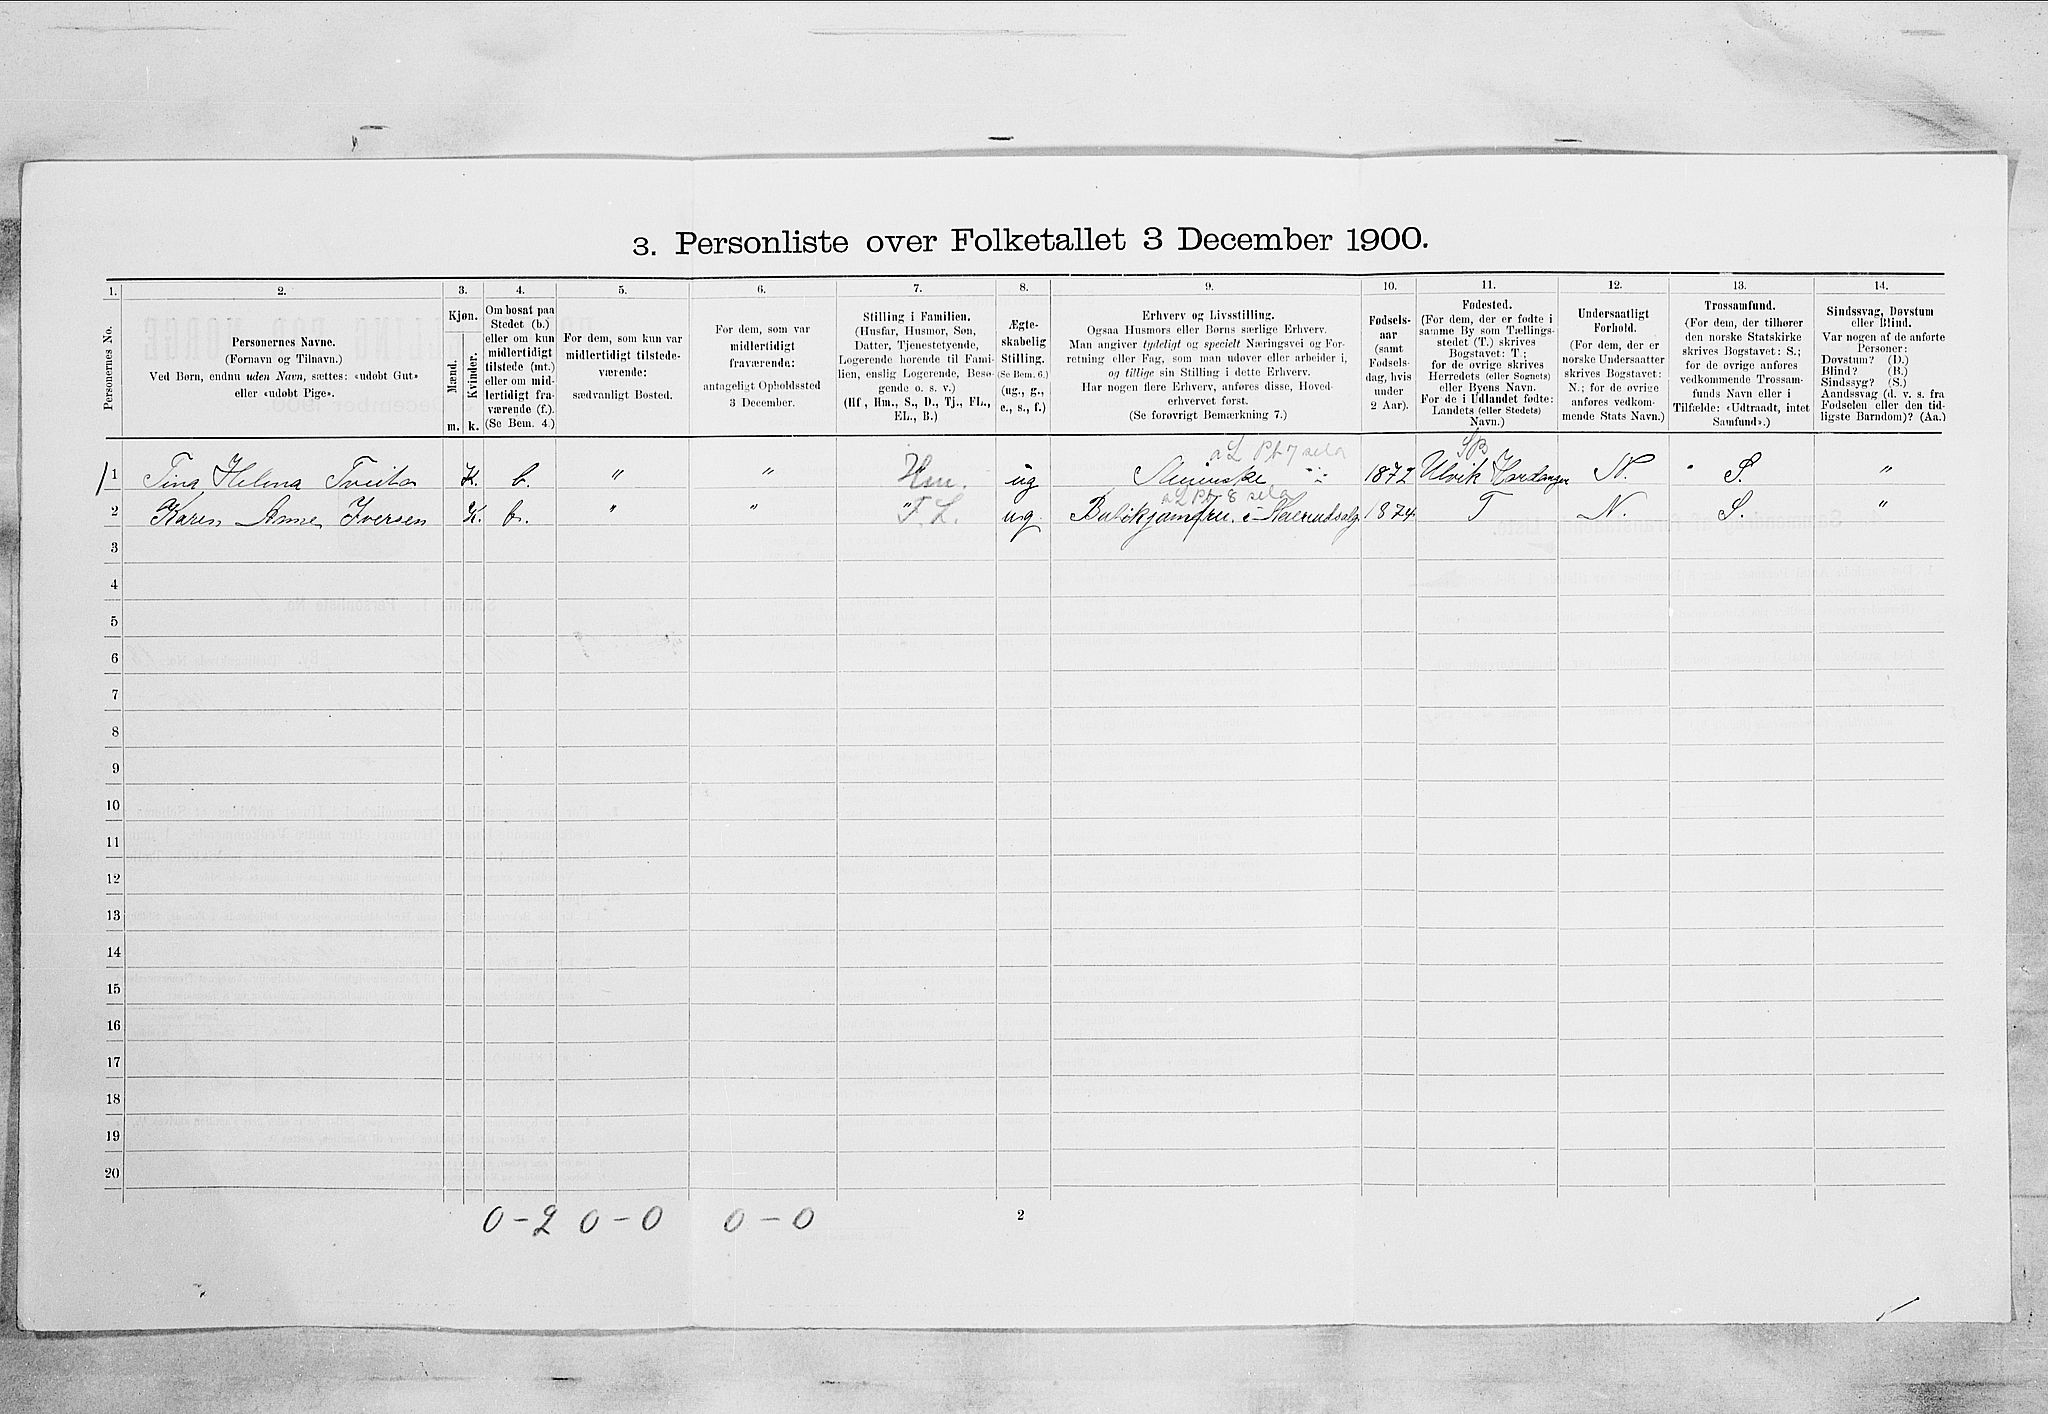 3. Personliste over Folketallet 3 December 1900.
1. 2. 3. 4. 5. 6. 7. 8. 9. 10. 11. 12. 13. 14.
Personernes No.
Personernes Navne.
(Fornavn og Tilnavn.)
Ved Børn, endnu uden Navn, sættes: «udøbt Gut»
eller «udøbt Pige».
Kjøn.
Mænd. Kvinder.
m. k.
Om bosat paa
Stedet (b.)
eller om kun
midlertidigt
tilstede (mt.)
eller om mid-
lertidigt fra-
værende (f.).
(Se Bem. 4.)
For dem, som kun var
midlertidigt tilstede-
værende:
sædvanligt Bosted.
For dem, som var
midlertidigt
fraværende:
antageligt Opholdssted
3 December.
Stilling i Familien.
(Husfar, Husmor, Søn,
Datter, Tjenestetyende,
Logerende hørende til Fami-
lien, enslig Logerende, Besø-
gende o. s. v.)
(Hf., Hm., S., D., Tj., FL.,
EL., B.)
Ægte-
skabelig
Stilling.
(Se Bem. 6.)
(ug., g.,
e., s., f.)
Erhverv og Livsstilling.
Ogsaa Husmors eller Børns særlige Erhverv.
Man angiver tydeligt og specielt Næringsvei og For-
retning eller Fag, som man udøver eller arbeider i,
og tillige sin Stilling i dette Erhverv.
Har nogen flere Erhverv, anføres disse, Hoved-
erhvervet først.
(Se forøvrigt Bemærkning 7.)
Fødsels-
aar
(samt
Fødsels-
dag, hvis
under
2 Aar).
Fødested.
(For dem, der er fødte i
samme By som Tællings-
stedet (T.) skrives
Bogstavet: T;
for de øvrige skrives
Herredets (eller Sognets)
eller Byens Navn.
For de i Udlandet fødte:
Landets (eller Stedets)
Navn.)
Undersaatligt
Forhold.
(For dem, der er
norske Undersaatter
skrives Bogstavet:
N.; for de øvrige
anføres vedkom-
mende Stats Navn.)
Trossamfund.
(For dem, der tilhører
den norske Statskirke
skrives Bogstavet: S.;
for de øvrige anføres
vedkommende Trossam-
funds Navn eller i
Tilfælde: «Udtraadt, intet
Samfund».)
Sindssvag, Døvstum
eller Blind.
Var nogen af de anførte
Personer:
Døvstum? (D.)
Blind? (B.)
Sindssyg? (S.)
Aandssvag (d. v. s. fra
Fødselen eller den tid-
ligste Barndom)? (Aa.)
SB
1 Tina Helena Tveita K. b. " " Hm. ug 1872 Ulvik Hardanger N. S. "
2 Karen Anne Iversen K. b. " " F.L. ug. 1874 T N. S. "
3
4
5
6
7
8
9
10
11
12
13
14
15
16
17
18
19
20
0-2 0-0 0-0 2